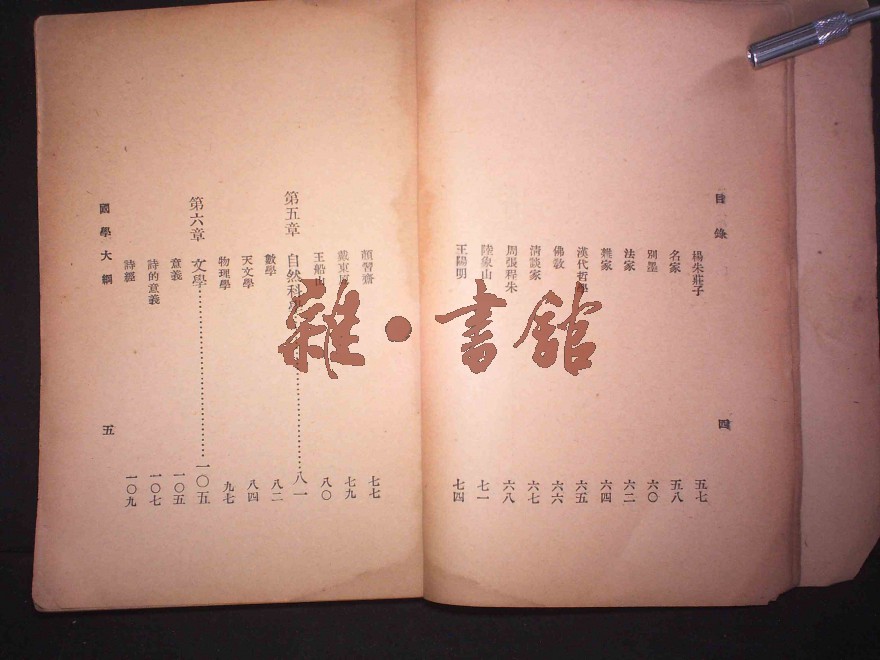 目錄
楊朱莊子 五七
名家 五八
別墨 六〇
法家 六二
雜家 六四
漢代哲學 六五
佛敎 六六
清談家 六七
周張程朱 六八
陸象山 七一
王陽明 七四
四
顏習齋 七七
戴東原 七九
王船山 八〇
第五章 自然科學 八一
數學 八二
天文學 八四
物理學 九七
第六章 文學 一〇五
意義 一〇五
詩的意義 一〇七
詩經 一〇九
國學大綱
五
雜·書館